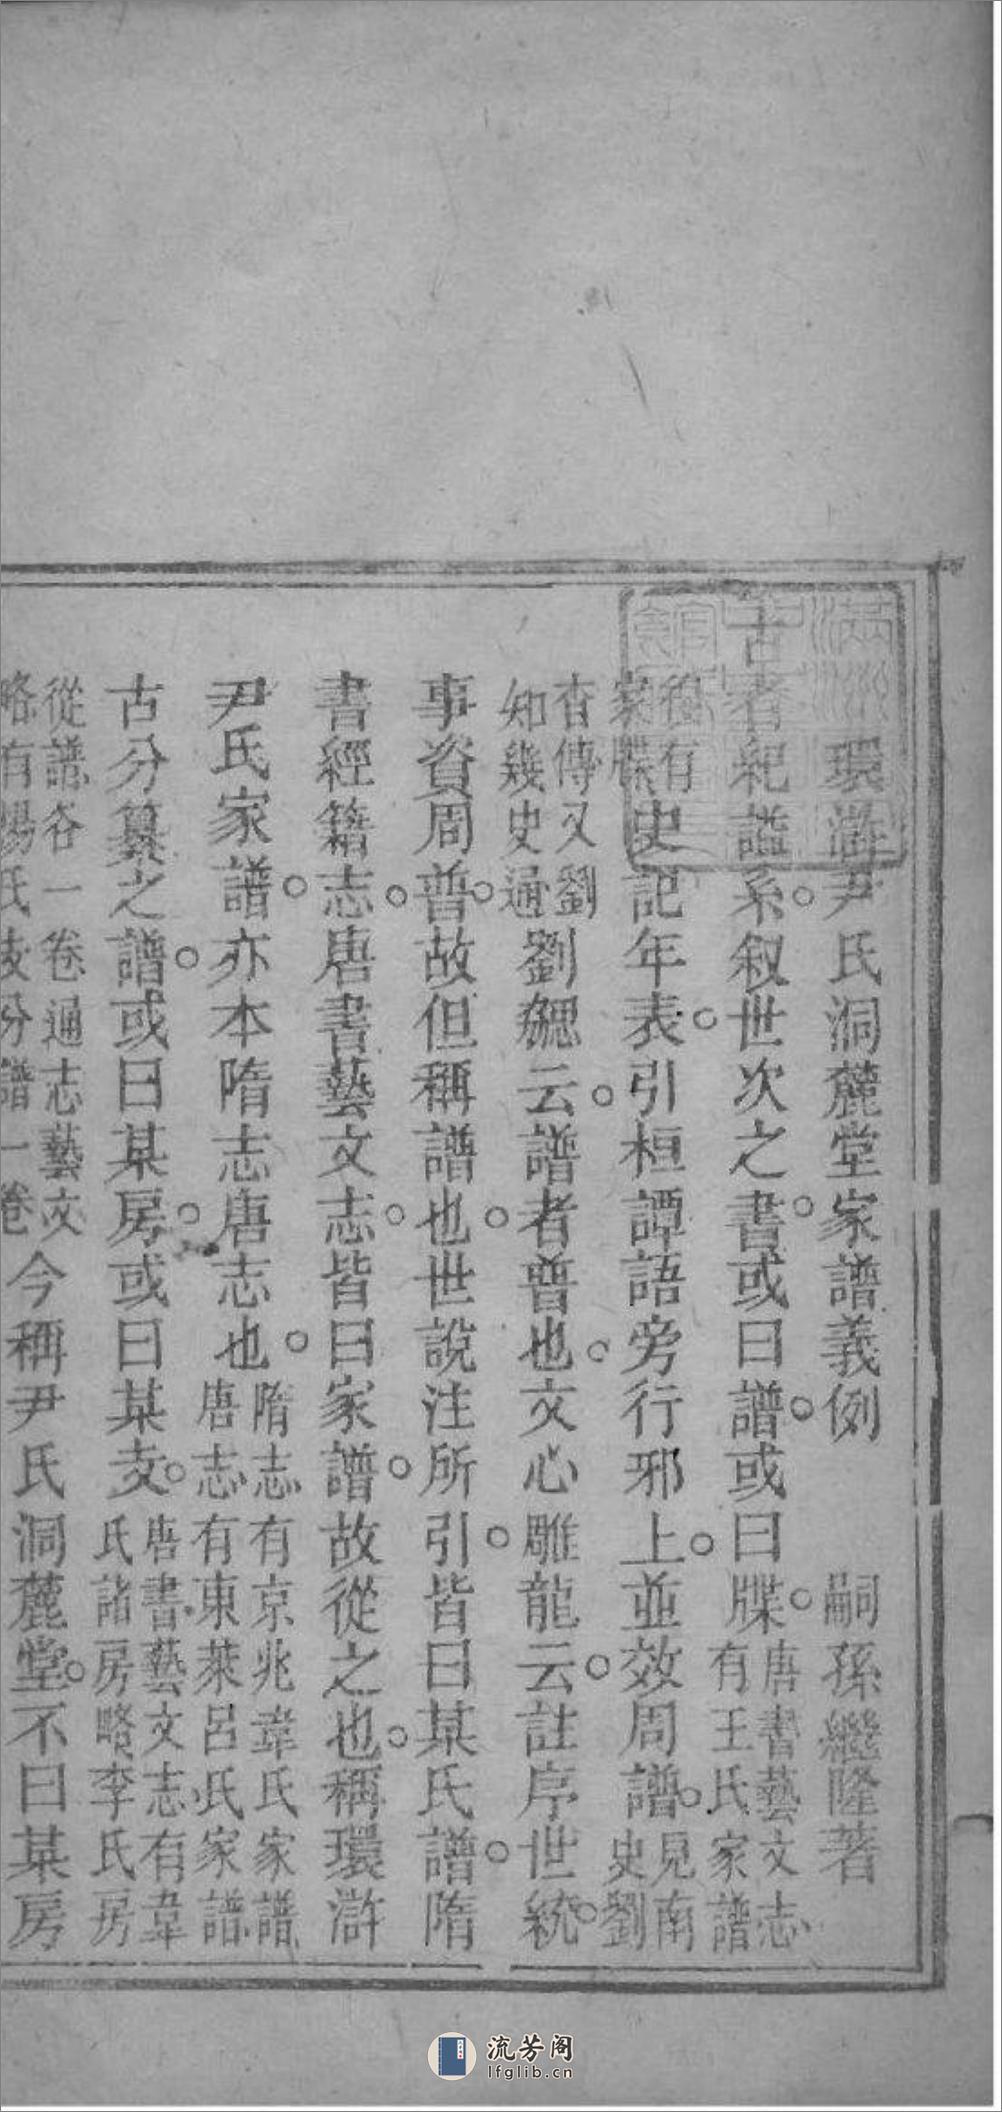 環滸尹氏洞麓堂家譜義例 嗣孫繼隆著
古者紀諡系叙世次之書或曰譜或曰牒唐書藝文志有王氏家譜
復有家牒史記年表引桓譚語旁行邪上並效周譜見南史劉
杳傳又劉知幾史通劉勰云譜者普也文心雕龍云註序世統
事資周普故但稱譜也世說注所引皆曰某氏譜隋
書經籍志唐書藝文志皆曰家譜故從之也稱環滸
尹氏家譜亦本隋志唐志也隋志有京兆韋氏家譜唐志有東萊呂氏家譜
古分纂之譜或曰某房或曰某支唐書藝文志有韋氏諸房略李氏房
從譜各一卷通志藝文略有楊氏支分譜一卷今稱尹氏洞麓堂不曰某房
流芳阁
lfglib.cn